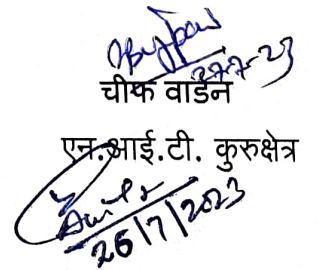 27-7-23
चीफ वार्डन
एन.आई.टी. कुरुक्षेत्र
26/7/2023